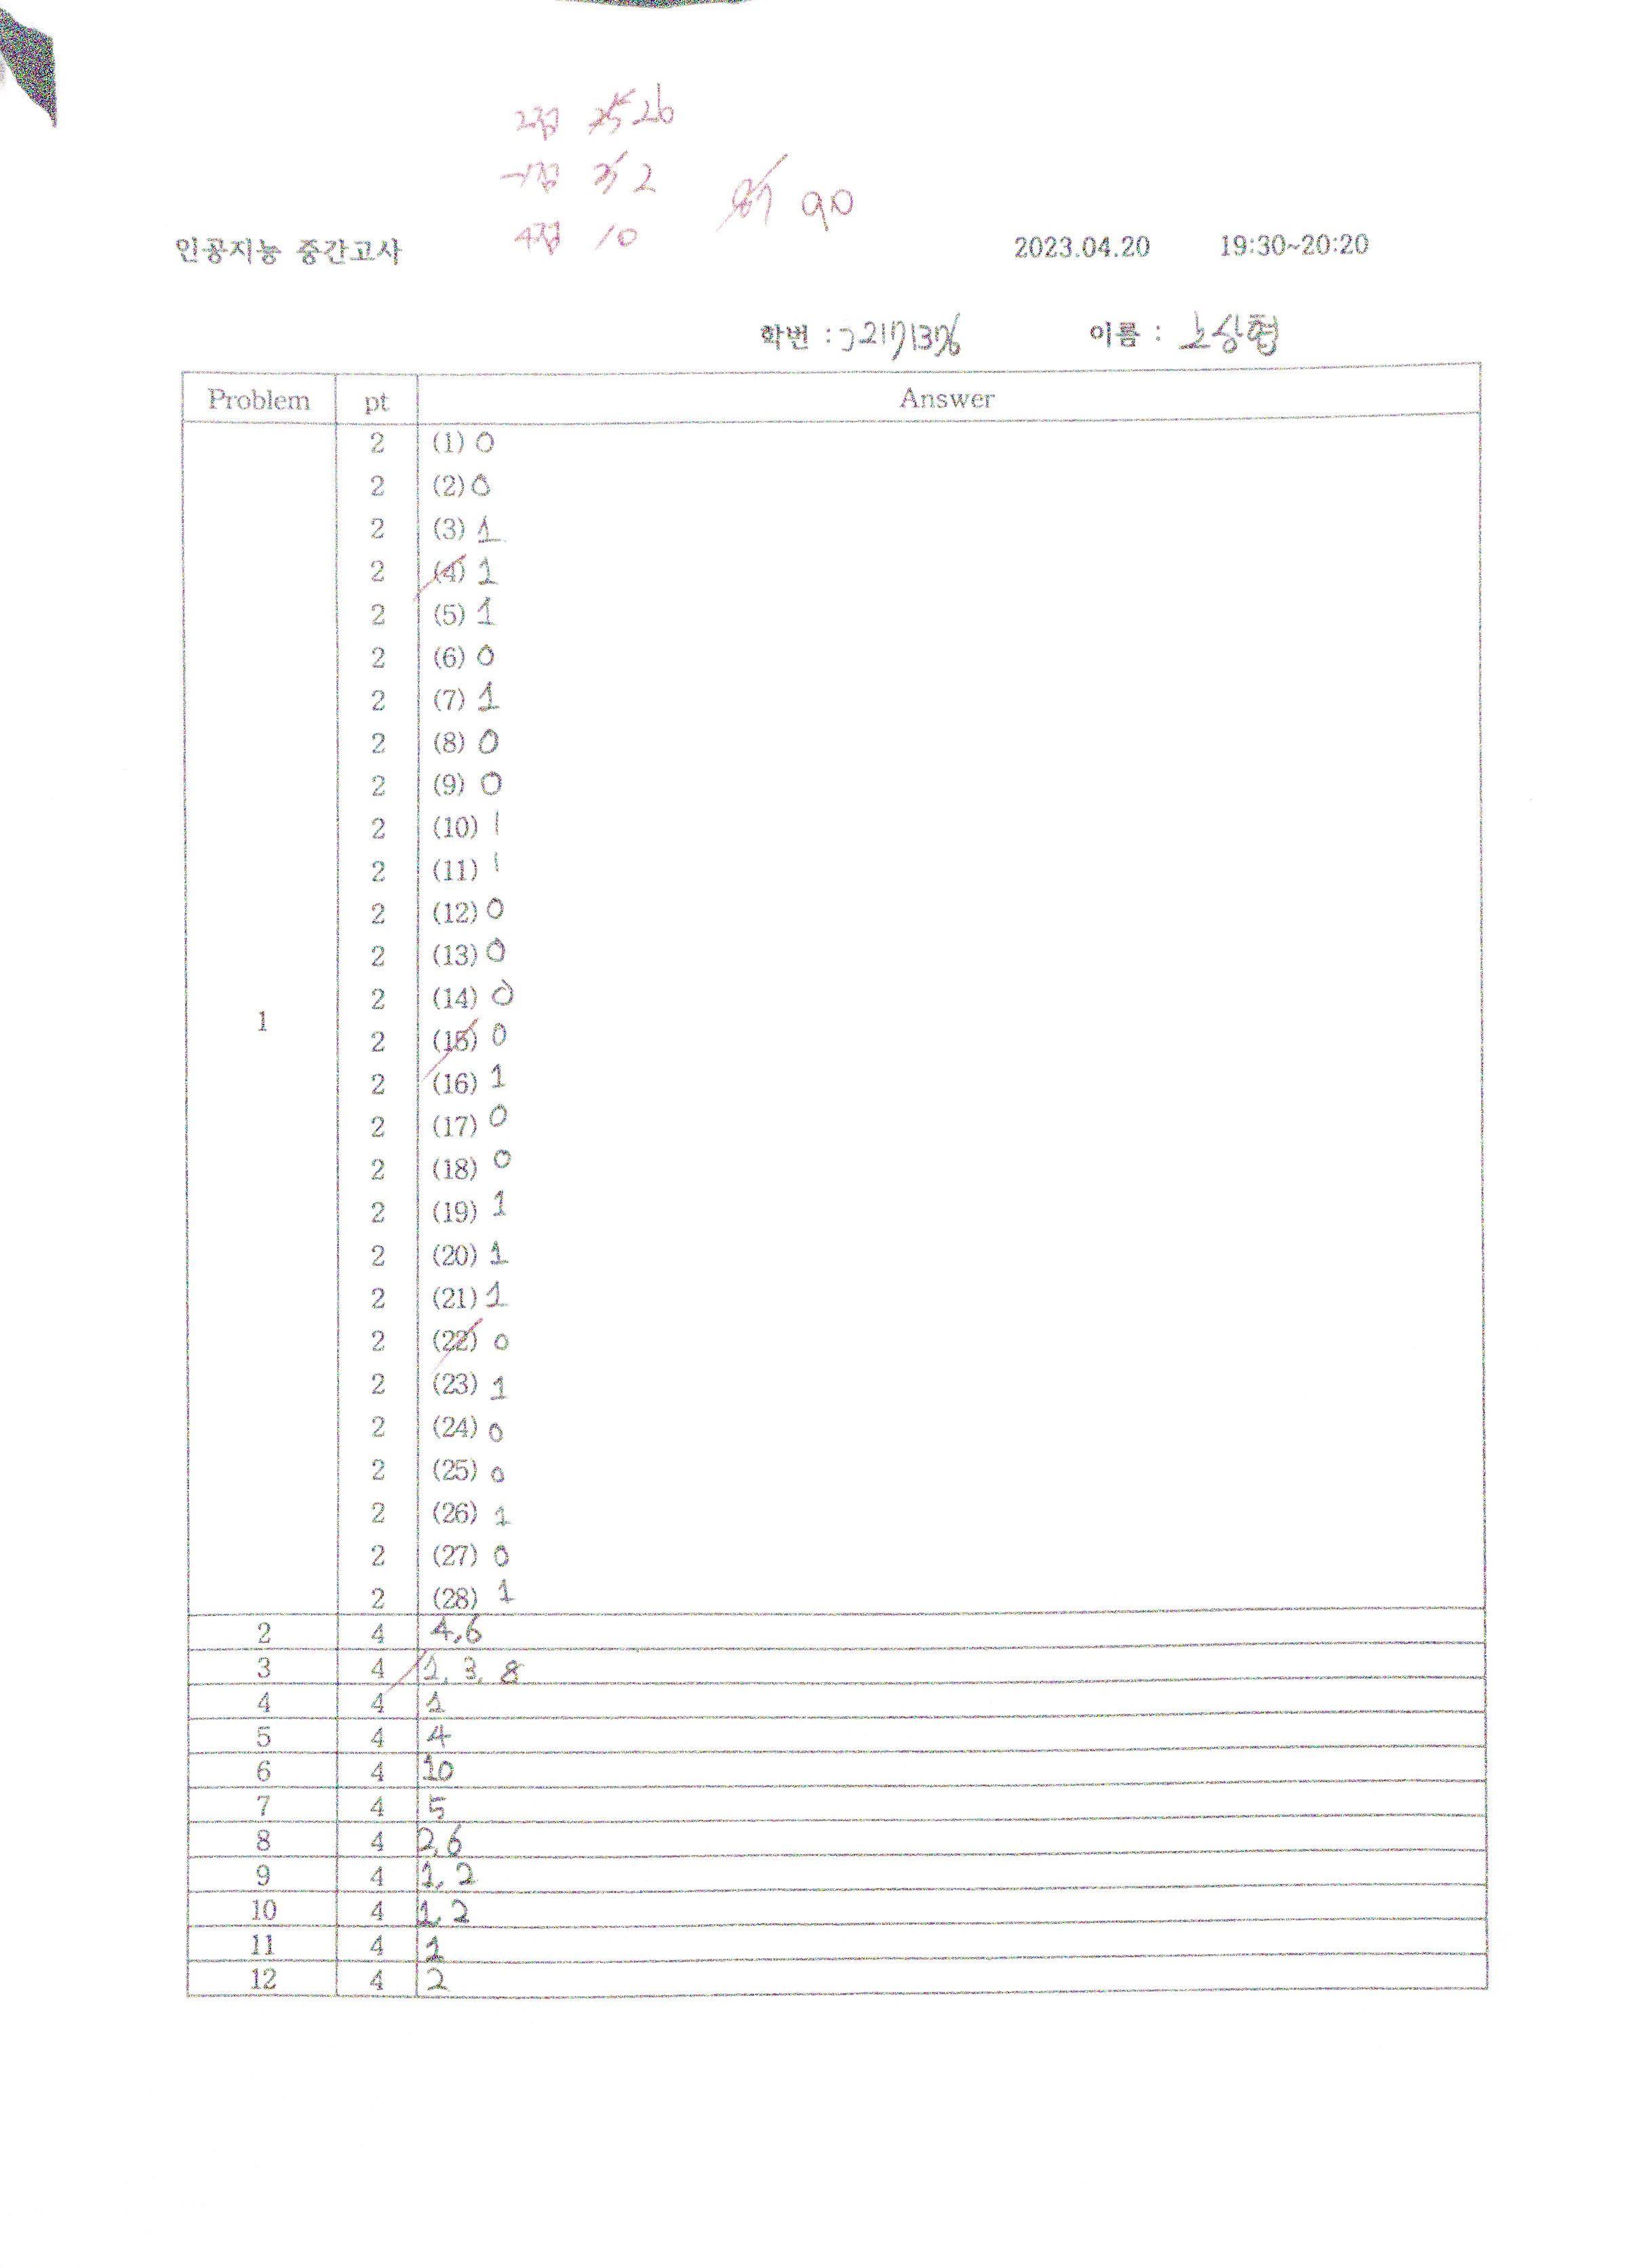 2점 25 26
-1점 3 2
87 90
4점 10
인공지능 중간고사 2023.04.20 19:30~20:20
학번 : 이름 : 노상협
Problem pt Answer
2 (1) 0
2 (2) 0
2 (3) 1
2 (4) 1
2 (5) 1
2 (6) 0
2 (7) 1
2 (8) 0
2 (9) 0
2 (10) 1
2 (11) 1
2 (12) 0
2 (13) 0
2 (14) 0
1
2 (15) 0
2 (16) 1
2 (17) 0
2 (18) 0
2 (19) 1
2 (20) 1
2 (21) 1
2 (22) 0
2 (23) 1
2 (24) 0
2 (25) 0
2 (26) 1
2 (27) 0
2 (28) 1
2 4 4,6
3 4 1, 3, 8
4 4 1
5 4 4
6 4 10
7 4 5
8 4 2,6
9 4 1, 2
10 4 1, 2
11 4 1
12 4 2